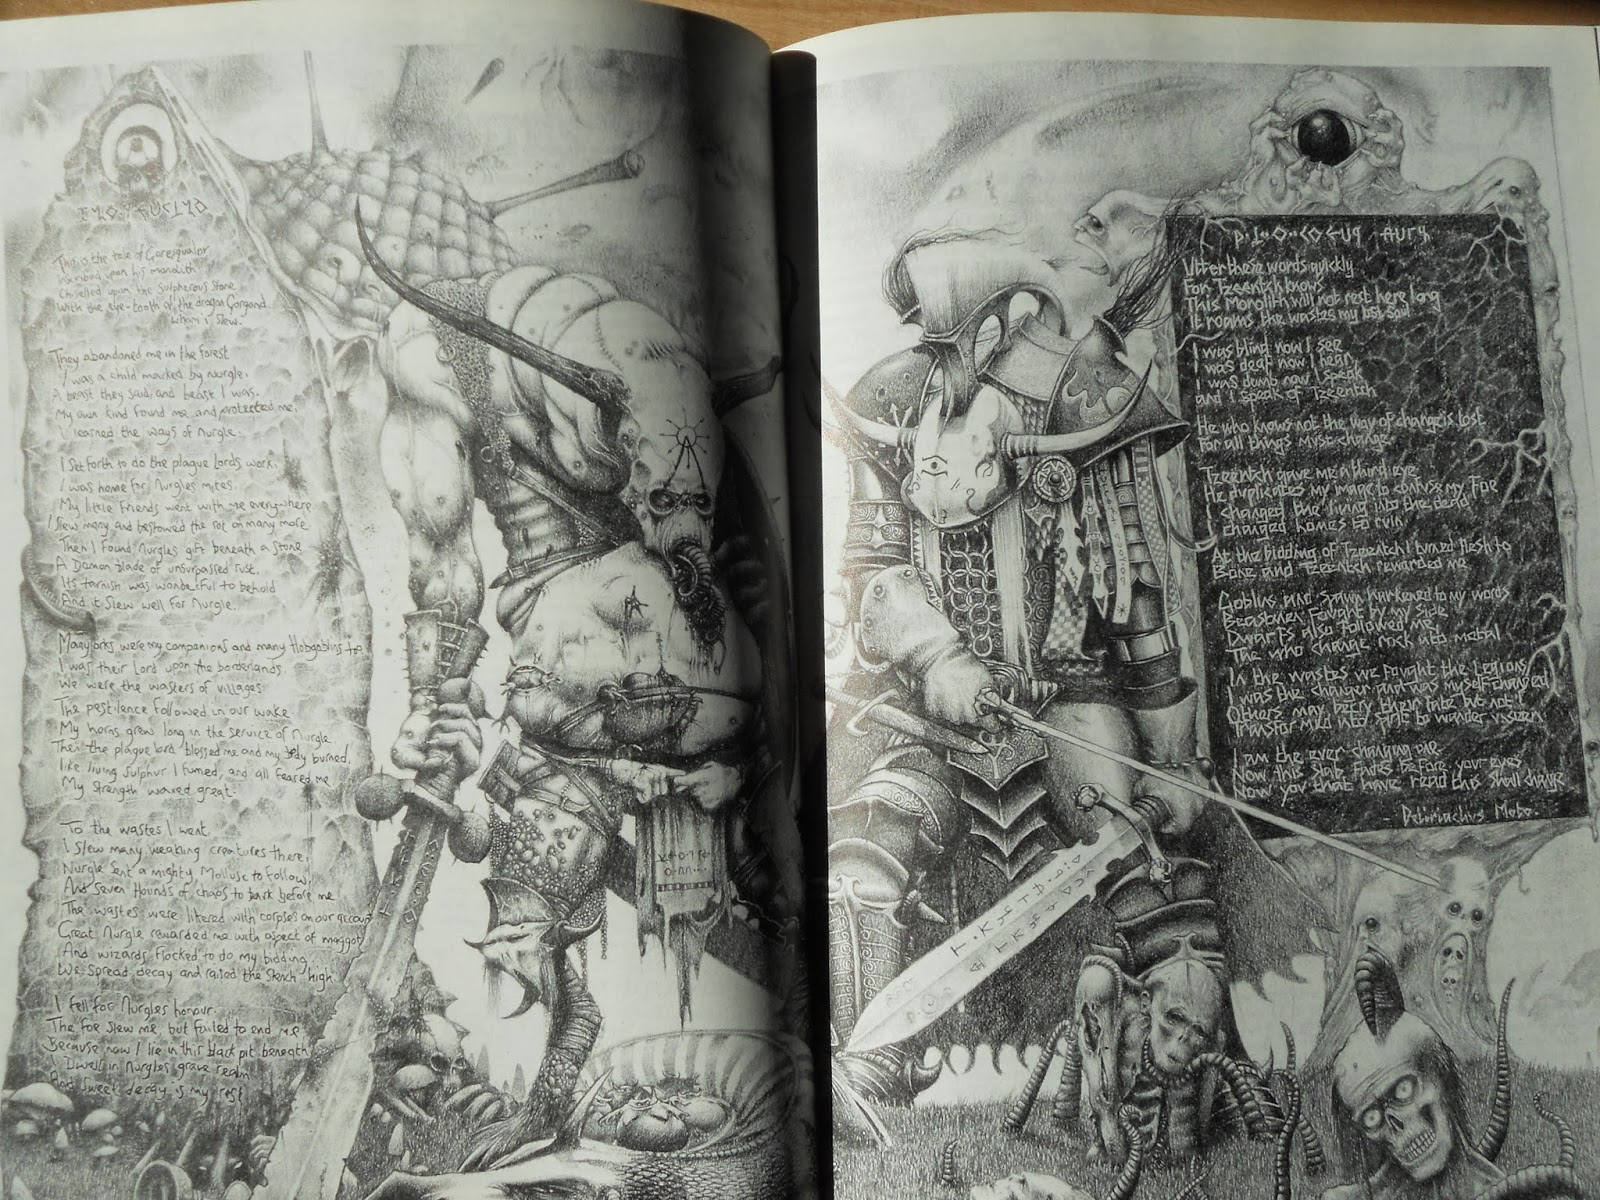 This is the tale of Goresqualor
inscribed upon his monolith
Chiselled upon the sulpherous stone
With the eye-tooth of the dragon Gorgand
whom I slew.
They abandoned me in the forest
I was a child marked by Nurgle.
A beast they said, and beast I was.
My own kind found me and protected me,
I learned the ways of Nurgle.
I set forth to do the plague Lords work,
I was home for Nurgles mites.
My little friends went with me everywhere
I slew many and bestowed the rot on many more
Then I found Nurgles gift beneath a stone
A Demon blade of unsurpassed rust.
Its tarnish was wonderful to behold
And it slew well for Nurgle.
Many orks were my companions and many Hobgoblins to
I was their Lord upon the borderlands.
We were the wasters of villages
The pestilence followed in our wake
My horns grew long in the service of Nurgle
Then the plague lord blessed me and my body burned,
like living sulphur I fumed, and all feared me
My strength waxed great.
To the wastes I went,
I slew many weakling creatures there,
Nurgle sent a mighty Mollusc to follow,
And seven Hounds of chaos to bark before me
The wastes were litered with corpses on our account
Great Nurgle rewarded me with aspect of maggot
And wizards flocked to do my bidding
We spread decay and raised the stench high
I fell for Nurgles honour
The foe slew me, but failed to end me
Because now I lie in this black pit beneath
Dwell in Nurgles grave realm
And sweet decay is my rest
Utter these words quickly
For Tzeentch knows
This Monolith will not rest here long
It roams the wastes my lost soul
I was blind now I see
I was deaf now I hear
I was dumb now I speak
and I speak of Tzeentch
He who knows not the way of change is lost
For all things must change
Tzeentch gave me a third eye
He duplicates my image to confuse my foe
I changed the living into the dead
I changed homes to ruin
At the bidding of Tzeentch I turned flesh to
Bone and Tzeentch rewarded me
Goblins and Spawn harkened to my words
Beastmen fought by my side
Dwarfs also followed me
The who change rock into metal
In the wastes we fought the Legions
I was the changer and was myself changed
Others may defy their fate but not I
Transformed into to wander unseen
I am the ever changing one
Now this slab fades before your eyes
Now you that have read this shall change
- Deliriachus Mobo.